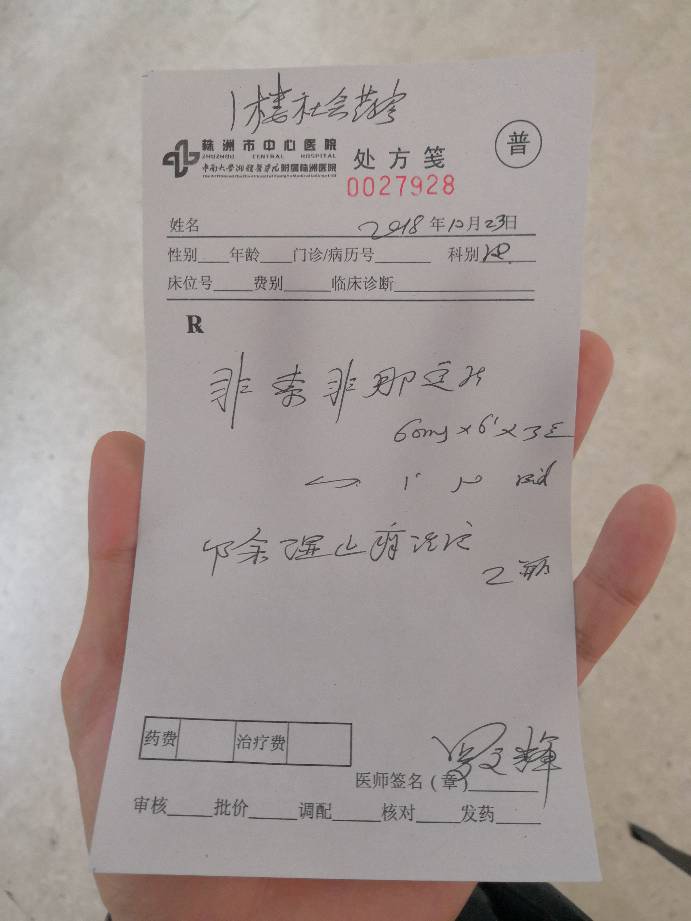 1楼社会药房
株洲市中心医院
ZHUZHOU CENTRAL HOSPITAL
中南大学湘雅医学院附属株洲医院
处方笺
普
0027928
姓名 2018年10月23日
性别 年龄 门诊/病历号 科别
床位号 费别 临床诊断
R
非索非那定片
60mg×6'×3盒
1' po bid
除湿止痒洗液
2瓶
药费 治疗费
医师签名(章) 罗文辉
审核 批价 调配 核对 发药